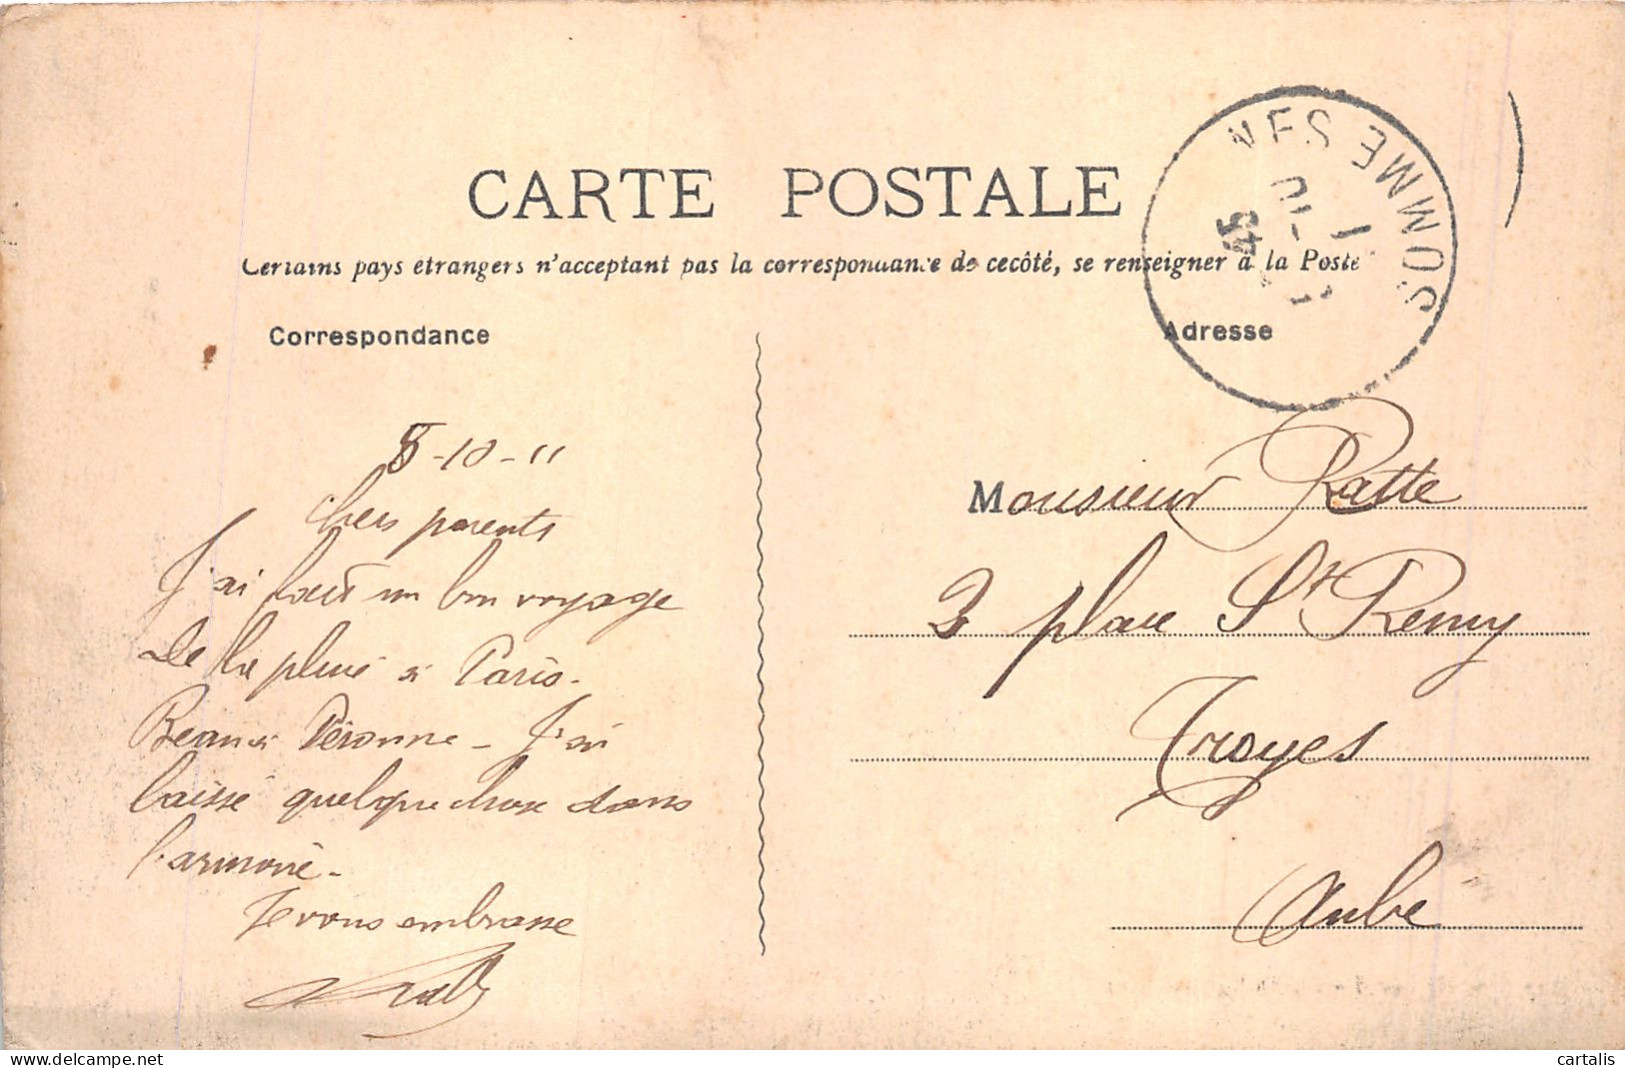 CARTE POSTALE
Certains pays etrangers n'acceptant pas la correspondance de cecôté, se renseigner à la Poste
Correspondance
Adresse
NES SOMME
45
10
1
8-10-11
Chers parents
J'ai fait un bon voyage
De la pluie à Paris.
Beau à Péronne - J'ai
laissé quelque chose dans
l'armoire -
Je vous embrasse
Monsieur Ratte
2 place St Remy
Troyes
Aube
www.delcampe.net
cartalis